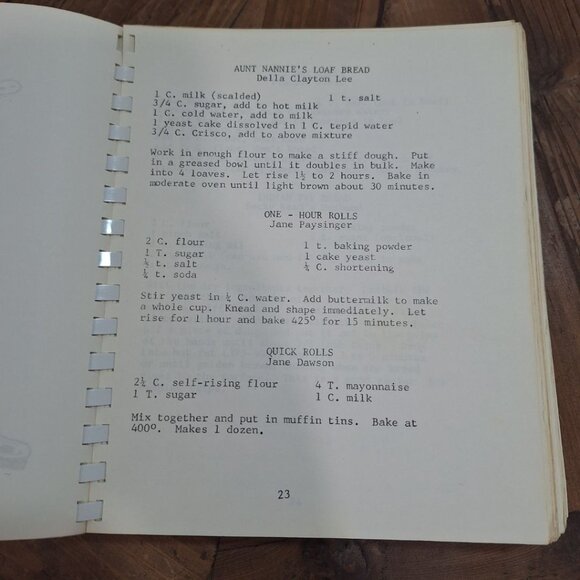 AUNT NANNIE'S LOAF BREAD
Della Clayton Lee
1 C. milk (scalded) 1 t. salt
3/4 C. sugar, add to hot milk
1 C. cold water, add to milk
1 yeast cake dissolved in 1 C. tepid water
3/4 C. Crisco, add to above mixture
Work in enough flour to make a stiff dough. Put
in a greased bowl until it doubles in bulk. Make
into 4 loaves. Let rise 1½ to 2 hours. Bake in
moderate oven until light brown about 30 minutes.
ONE - HOUR ROLLS
Jane Paysinger
2 C. flour 1 t. baking powder
1 T. sugar 1 cake yeast
½ t. salt ¼ C. shortening
¼ t. soda
Stir yeast in ¼ C. water. Add buttermilk to make
a whole cup. Knead and shape immediately. Let
rise for 1 hour and bake 425° for 15 minutes.
QUICK ROLLS
Jane Dawson
2¼ C. self-rising flour 4 T. mayonnaise
1 T. sugar 1 C. milk
Mix together and put in muffin tins. Bake at
400°. Makes 1 dozen.
23